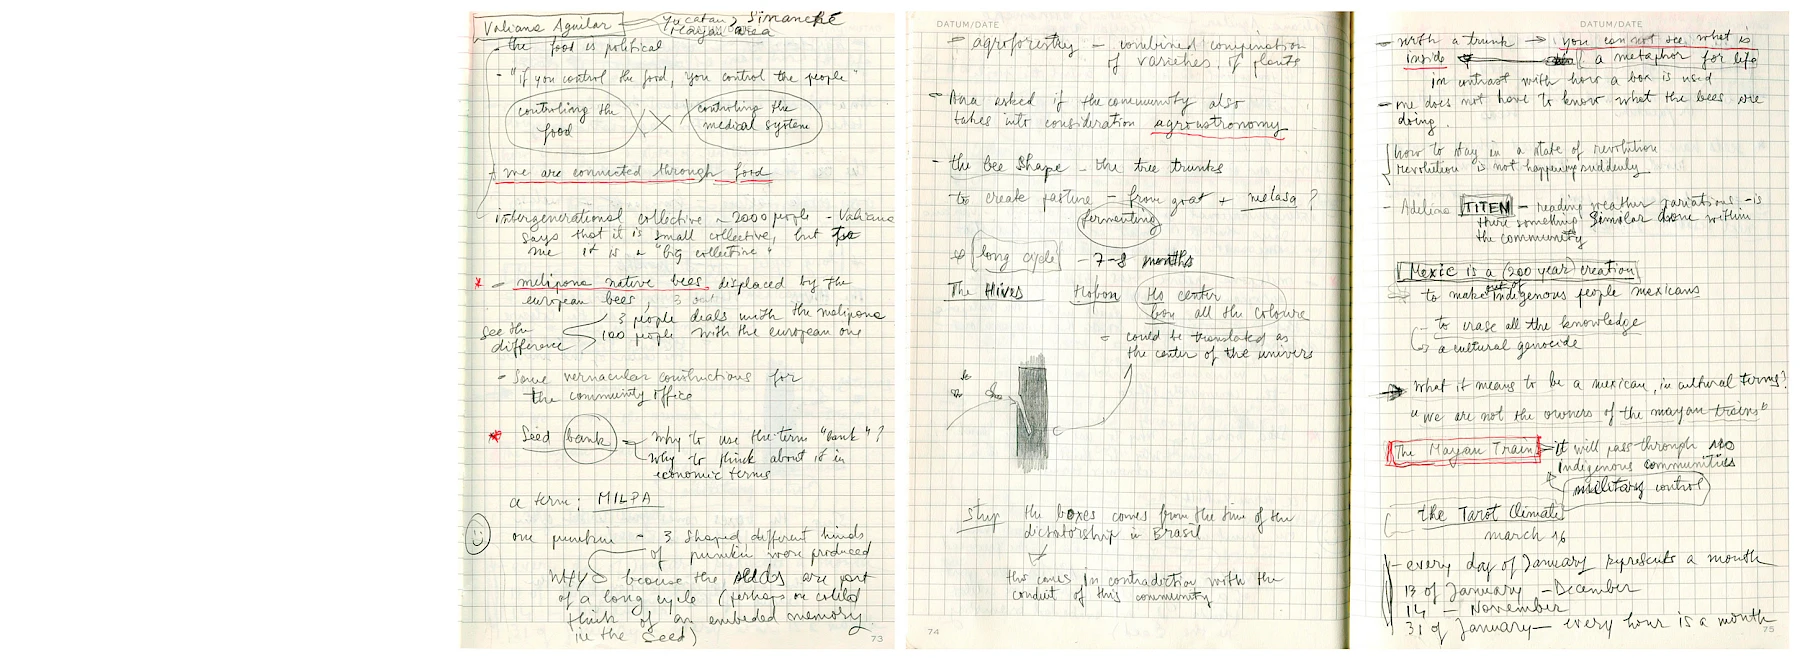 Valiana Aguilar — Yucatan, Sinanché
Mayan area
- the food is political
- "if you control the food, you control the people"
controling the food
controling the medical system
we are connected through food
intergenerational collective ~ 2000 people - Valiana
says that it is small collective, but for
me it is a "big collective"
* - melipona native bees displaced by the
european bees, 3 out
3 people deals with the melipona
100 people with the european one
see the
difference
- Some vernacular constructions for
the community office
* Seed bank - why to use the term "bank"?
why to think about it in
economic terms
a term: MILPA
one pumpkin - 3 shaped different kinds
of pumkin were produced
WHY because the seeds are part
of a long cycle (perhaps one could
think of an embeded memory
in the seed)
73
DATUM/DATE
- agroforestry - combined combination
of varieties, of plants
- Ana asked if the community also
takes into consideration agroastronomy
- the bee shape - the tree trunks
to create pasture - from goat + melasa?
fermenting
long cycle - 7-8 months
The HIVES Hobon Ho center
bon all the colours
= could be translated as
the center of the univers
stup the boxes comes from the time of the
dictatorship in Brasil
this comes in contradiction with the
conduit of this community
74
DATUM/DATE
- with a trunk → you can not see what is
inside a metaphor for life
in contrast with how a box is used
- me does not have to know what the bees are
doing.
how to stay in a state of revolution
revolution is not happening suddenly
- Adelina TITEN - reading weather variations - is
there something similar done within
the community
Mexic is a (200 year) creation
to make out of indigenous people mexicans
- to erase all the knowledge
a cultural genocide
→ What it means to be a mexican, in cultural terms?
"we are not the owners of the mayan trains"
The Mayan Train - it will pass through no
indigenous communities
military control
the Tarot Climatic
march 16
- every day of January represents a month
13 of January - December
14 - November
31 of January - every hour is a month
75